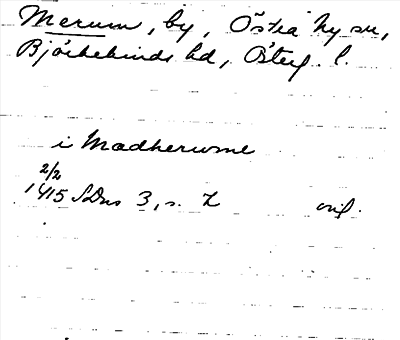 Merum, by, Östra Ny sn,
Björkekinds hd, Österg. l.
i Madherwme
2/2
1415 SDns 3, s. 2 orig.